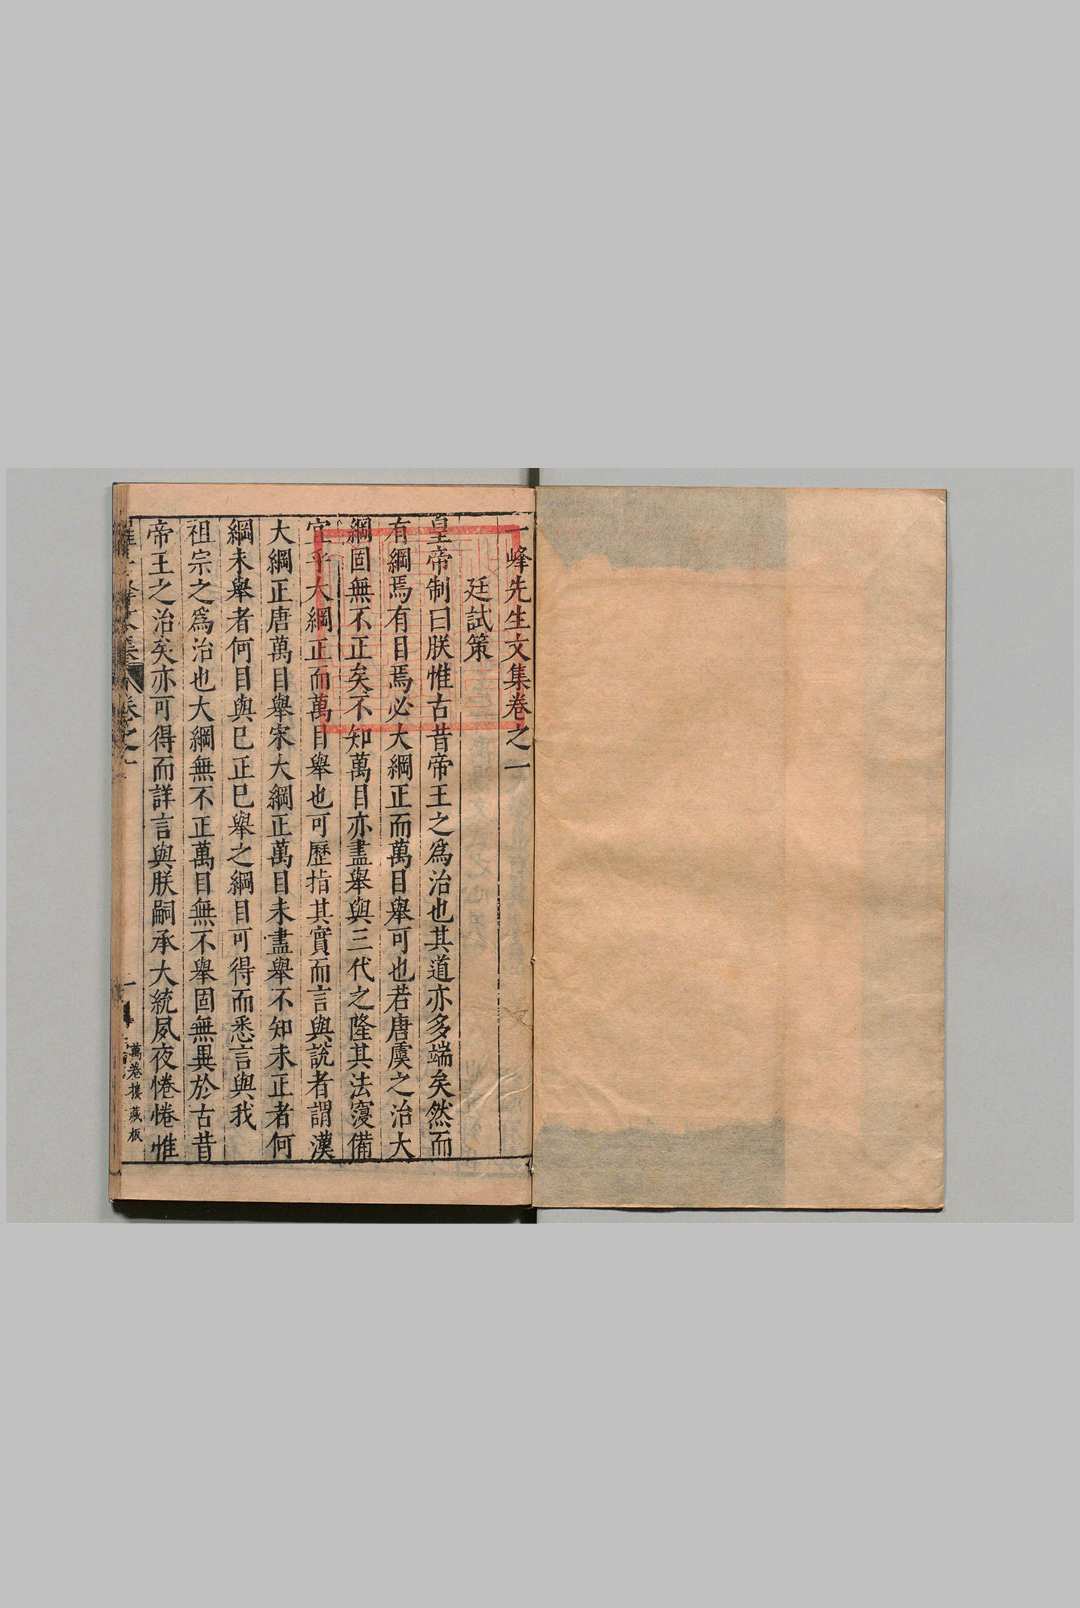 一峰先生文集卷之一
廷試策
皇帝制曰朕惟古昔帝王之爲治也其道亦多端矣然而
有綱焉有目焉必大綱正而萬目舉可也若唐虞之治大
綱固無不正矣不知萬目亦盡舉與三代之隆其法寖備
宜乎大綱正而萬目舉也可歷指其實而言與説者謂漢
大綱正唐萬目舉宋大綱正萬目未盡舉不知未正者何
綱未舉者何目與已正已舉之綱目可得而悉言與我
祖宗之爲治也大綱無不正萬目無不舉固無異於古昔
帝王之治矣亦可得而詳言與朕嗣承大統夙夜惓惓惟
羅一峰文集
卷之一
一
萬卷樓藏板